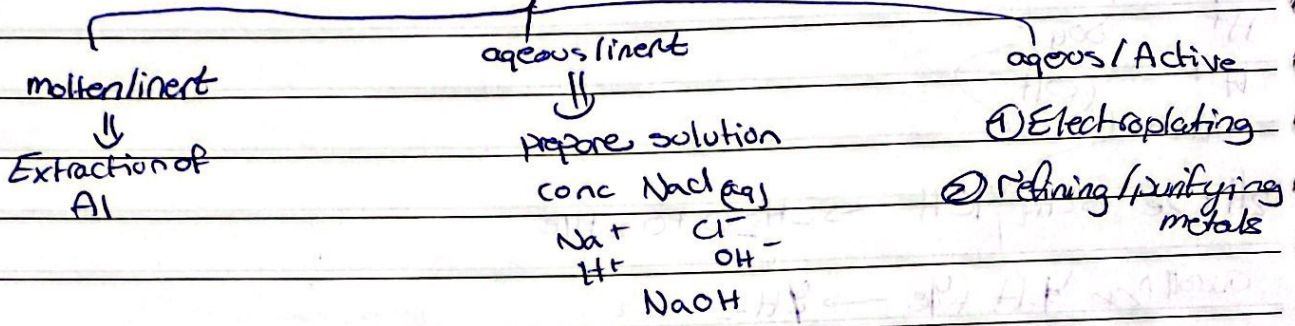 molten/inert
⇓
Extraction of
Al
aqeous/inert
⇓
prepare solution
conc Nacl (aq)
Na+ Cl-
H+ OH-
NaOH
aqeous / Active
① Electroplating
② refining/purifying
metals